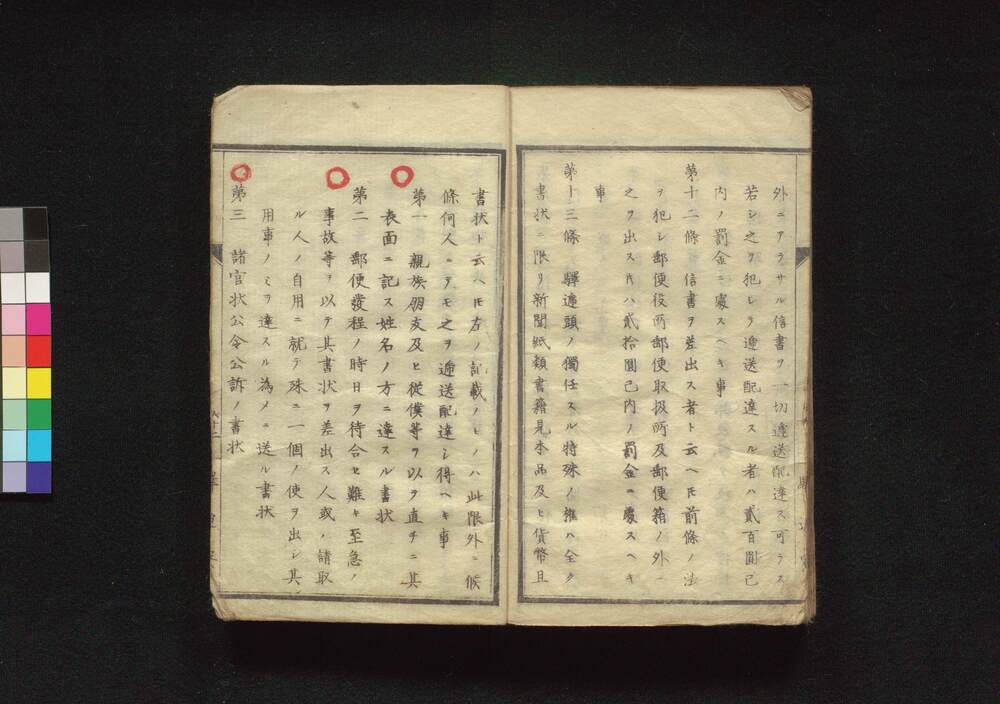 外ニアラサル信書ヲ一切遞送配達ス可ラス
若シ之ヲ犯シテ遞送配達スル者ハ貳百圓已
内ノ罰金ニ處スヘキ事
第十二條 信書ヲ差出ス者ト云ヘ𪜈前條ノ法
ヲ犯シ郵便役所郵便取扱所及郵便箱ノ外ニ
之ヲ出ス𪜈ハ貳拾圓已内ノ罰金ニ處スヘキ
事
第十三條 驛遞頭ノ獨任スル特殊ノ權ハ全ク
書状ニ限リ新聞紙類書籍見本品及ヒ貨幣且
書状ト云ヘ𪜈左ノ記載ノモノハ此限外ニ候
條何人ニテモ之ヲ遞送配達シ得ヘキ事
第一 親族朋友及ヒ從僕等ヲ以テ直チニ其
表面ニ記ス姓名ノ方ニ達スル書状
第二 郵便發程ノ時日ヲ待合セ難キ至急ノ
事故等ヲ以テ其書状ヲ差出ス人或ハ請取
ル人ノ自用ニ就テ殊ニ一個ノ使ヲ出シ其
用事ノミヲ達スル為メニ送ル書状
第三 諸官状公令公訴ノ書状